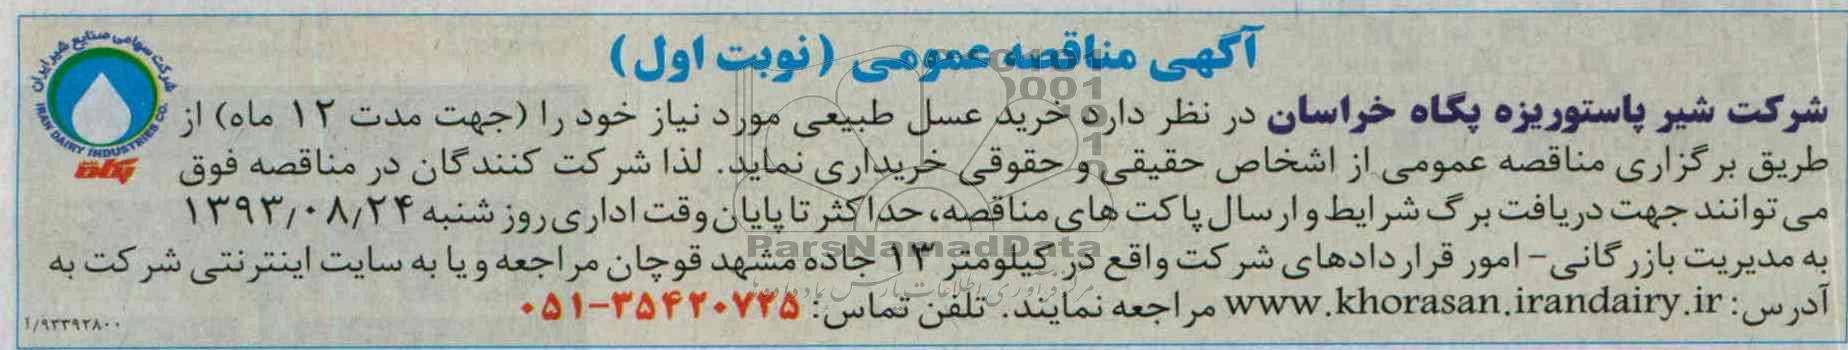 آگهی مناقصه عمومی (نوبت اول)
شرکت شیر پاستوریزه پگاه خراسان در نظر دارد خرید عسل طبیعی مورد نیاز خود را (جهت مدت ۱۲ ماه) از
طریق برگزاری مناقصه عمومی از اشخاص حقیقی و حقوقی خریداری نماید. لذا شرکت کنندگان در مناقصه فوق
می توانند جهت دریافت برگ شرایط و ارسال پاکت های مناقصه، حداکثر تا پایان وقت اداری روز شنبه ۱۳۹۳/۰۸/۲۴
به مدیریت بازرگانی- امور قراردادهای شرکت واقع در کیلومتر ۱۳ جاده مشهد قوچان مراجعه و یا به سایت اینترنتی شرکت به
آدرس: www.khorasan.irandairy.ir مراجعه نمایند. تلفن تماس: ۰۵۱-۳۵۴۲۰۷۲۵
شرکت سهامی صنایع شیر ایران
IRAN DAIRY INDUSTRIES CO.
پگاه
۹۳۳۹۲۸۰۰/آ
ParsNamadData
مرکز فرآوری اطلاعات پارس نماد داده ها